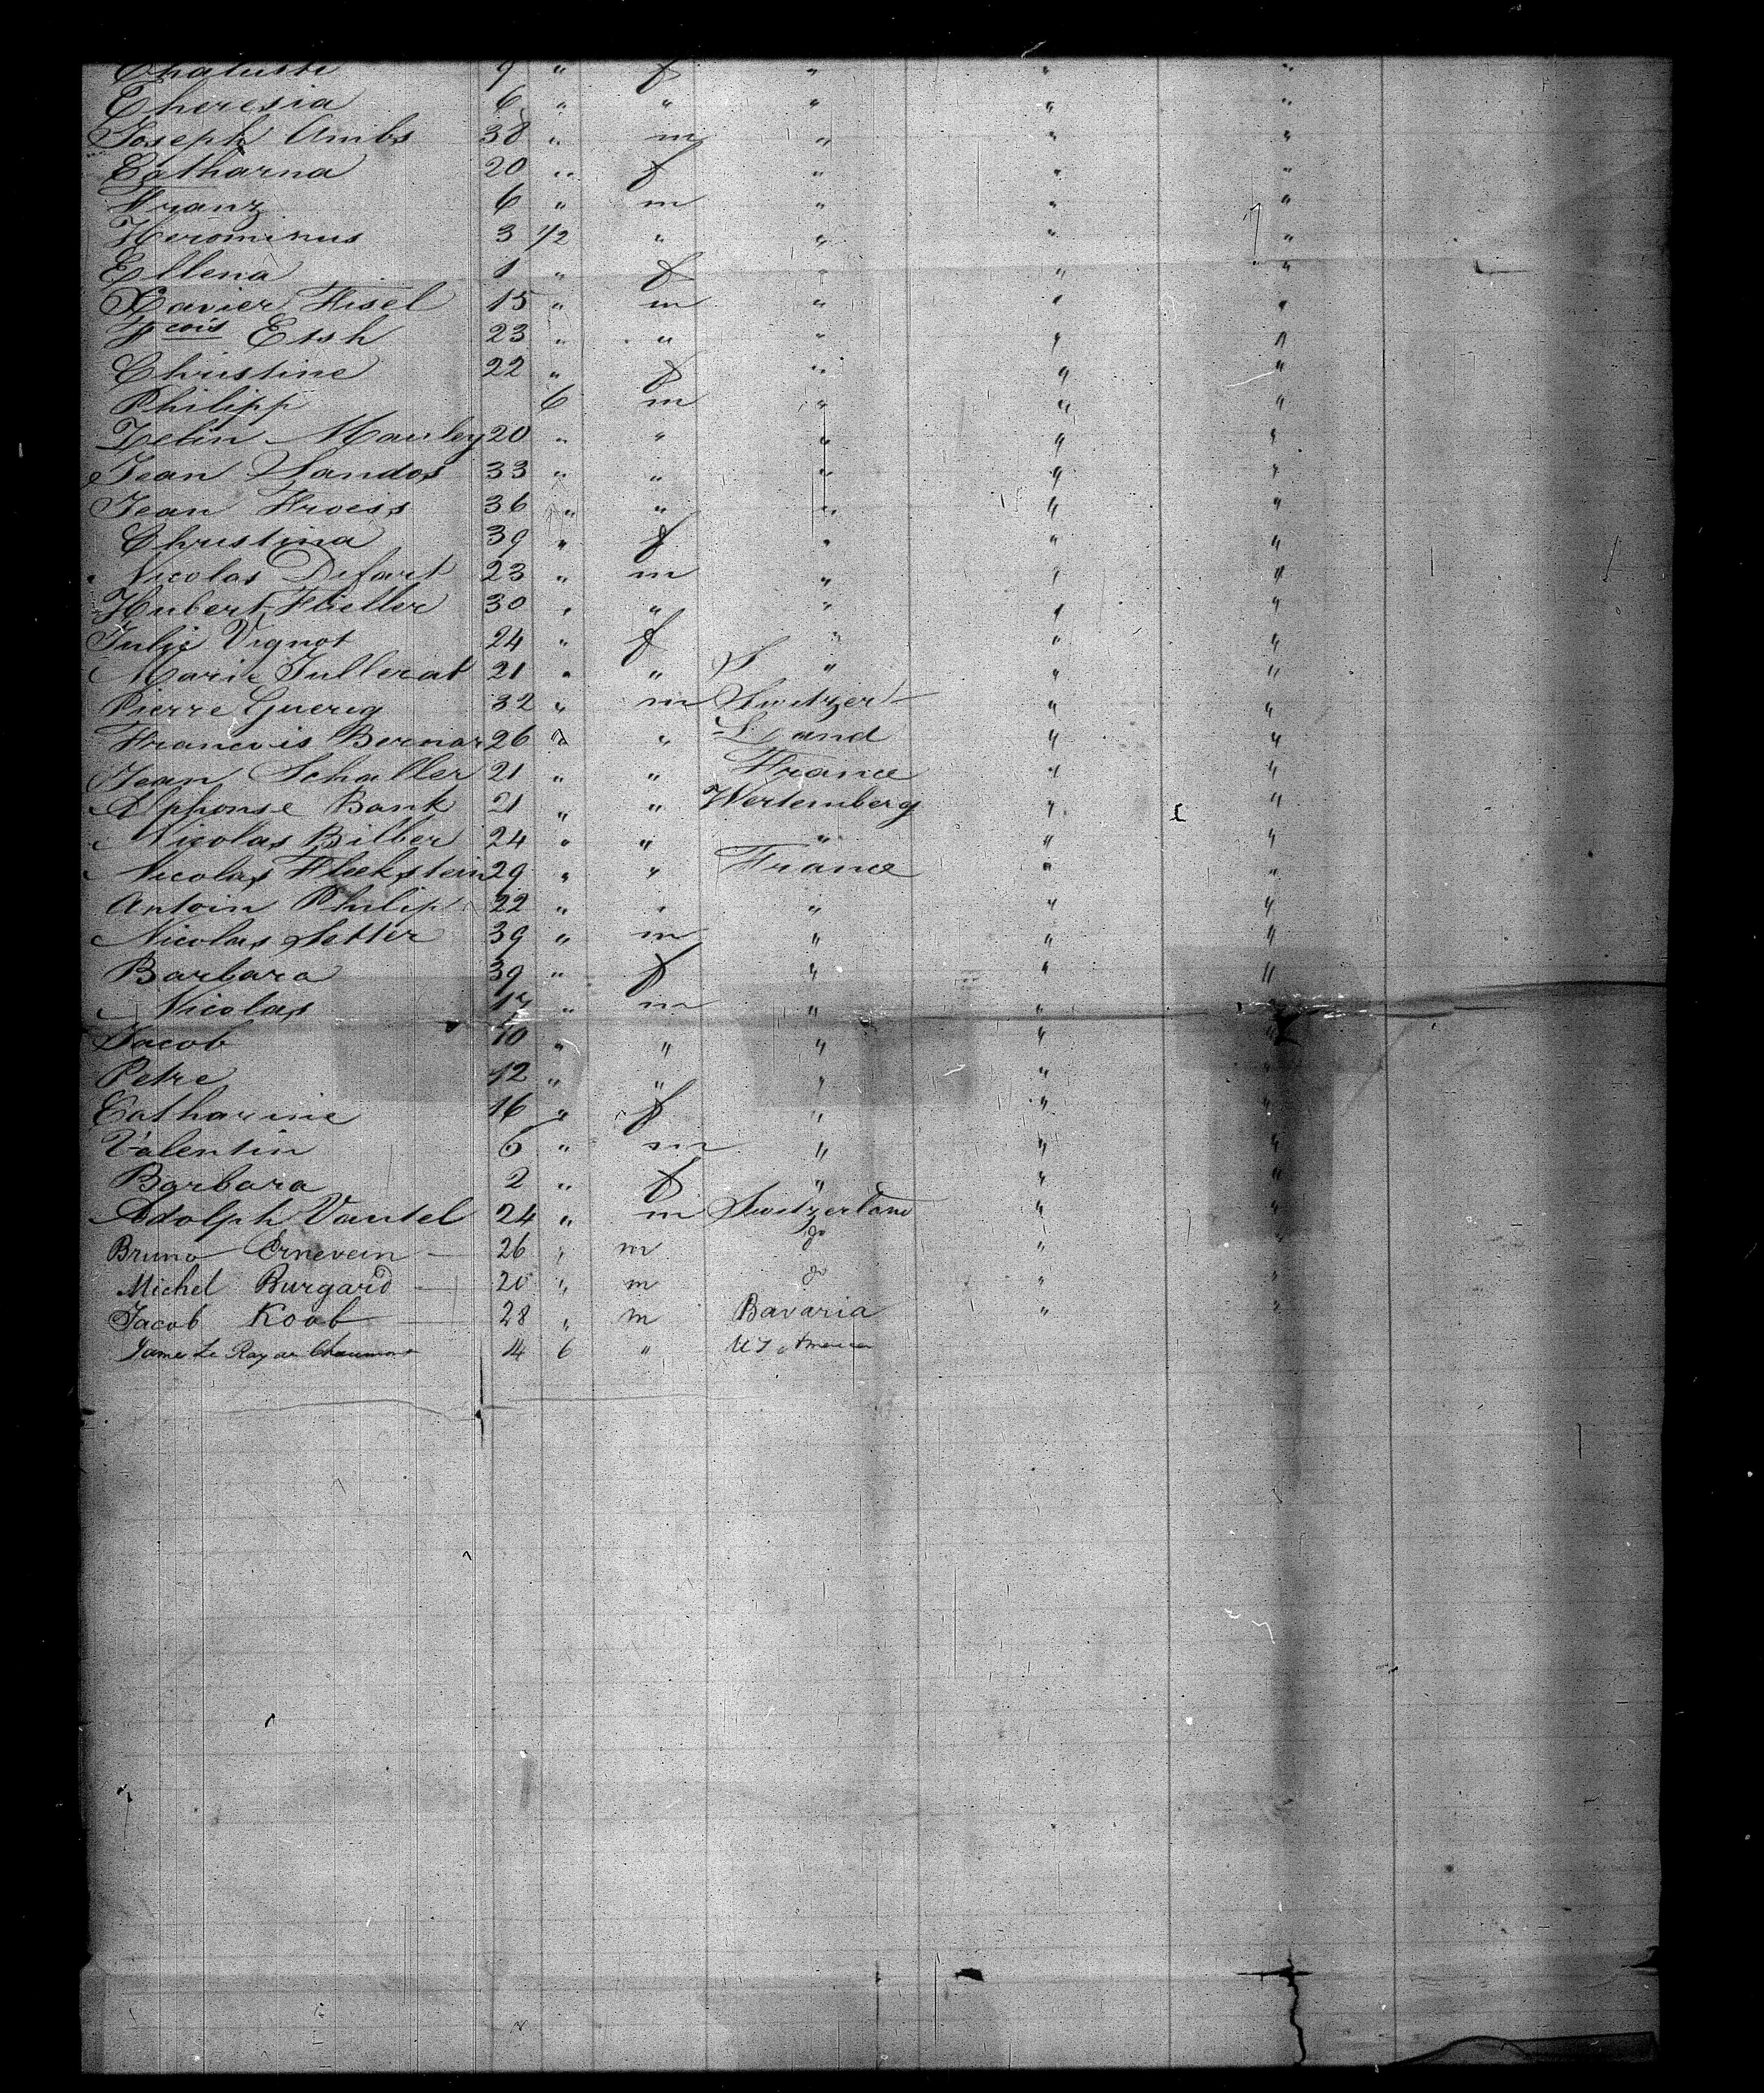 Theresia 6 " " " " "
Joseph Ambs 38 " m " " "
Catharna 20 " f " " "
Franz 6 " m " " "
Herominus 3 1/2 " " " "
Ellena 1 " f " " "
Xavier Fisel 15 " m " " "
Fcois Etsh 23 " " " " "
Christine 22 " f " " "
Philipp 6 m " " "
Zelin Mauley 20 " " " " "
Jean Sandos 33 " " " " "
Jean Froess 36 " " " " "
Christina 39 " f " " "
Nicolas Defart 23 " m " " "
Hubert Fueller 30 " " " " "
Julie Vignot 24 " f " " "
Marie Jullerat 21 " " " " "
Pierre Guerig 32 " m Switzer- " "
Francois Bernar 26 " " Land " "
Jean Schaller 21 " " France " "
Alphonse Bank 21 " " Wertemberg " "
Nicolas Bilber 24 " " " " "
Nicolas Fleckstein 29 " " France " "
Antoin Philip 22 " " " " "
Nicolas Setter 39 " m " " "
Barbara 39 " f " " "
Nicolas 17 " m " " "
Jacob 10 " " " " "
Petre 12 " " " " "
Catharine 16 " f " " "
Valentin 6 " m " " "
Barbara 2 " f " " "
Adolph Vautel 24 " m Switzerland " "
Bruno Ernevein 26 " m do " "
Michel Burgard 20 " m do " "
Jacob Koob 28 " m Bavaria " "
James Le Ray de Chaumont 14 6 " U S America